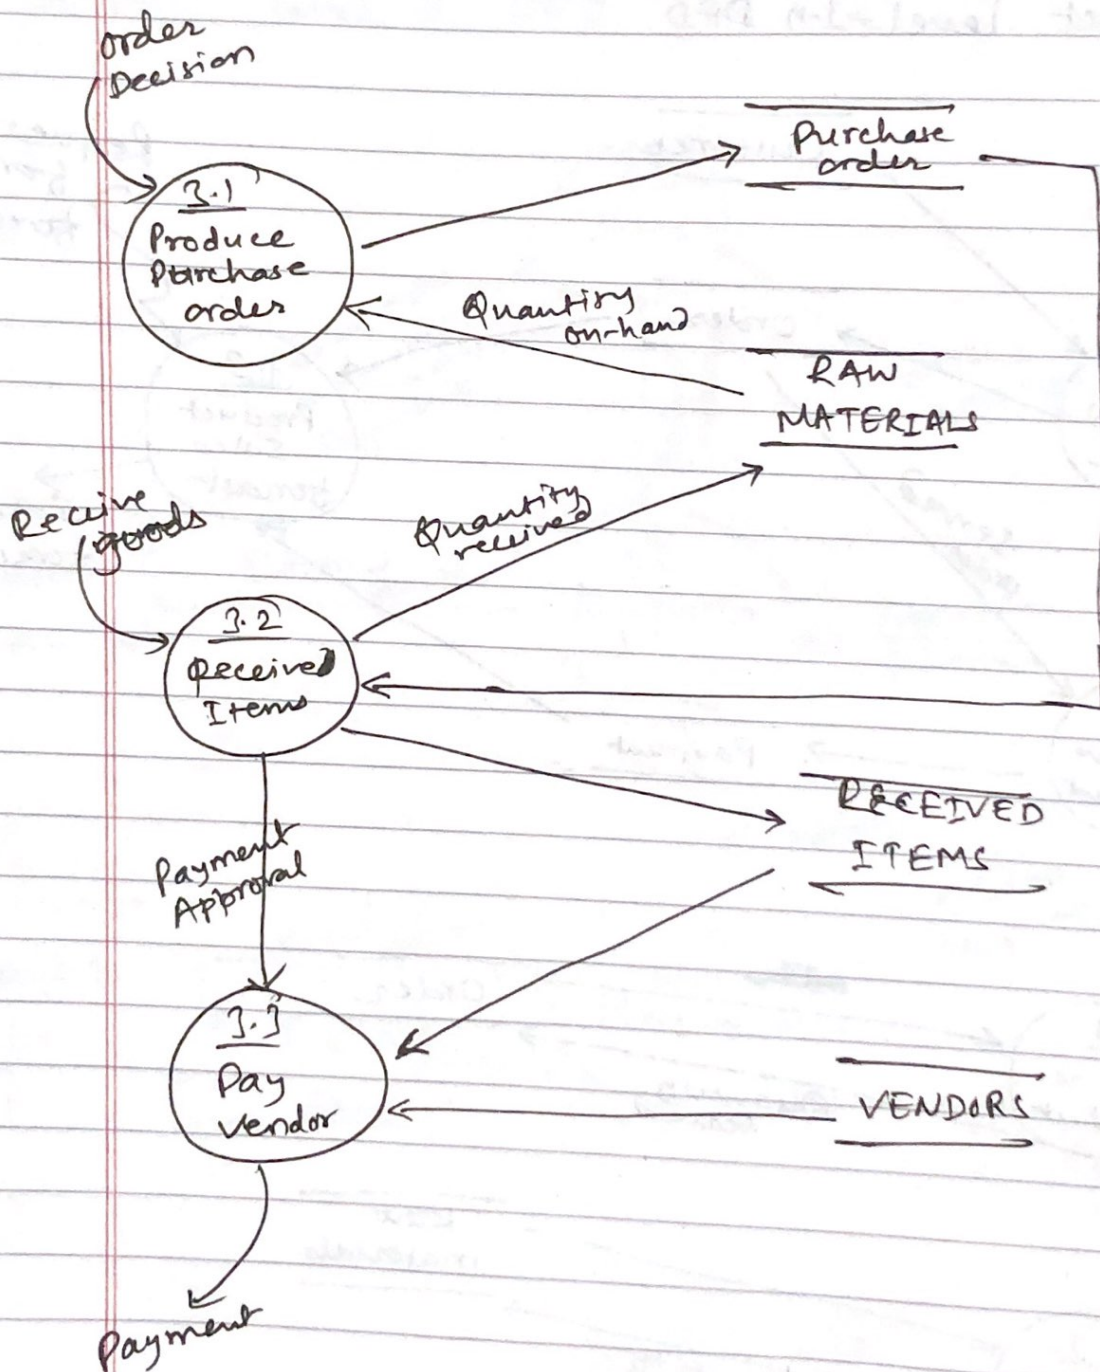 Order
Decision
Purchase
order
3.1
Produce
Purchase
order
Quantity
on-hand
RAW
MATERIALS
Receive
goods
Quantity
received
3.2
Received
Items
RECEIVED
ITEMS
Payment
Approval
3.3
Pay
vendor
VENDORS
Payment